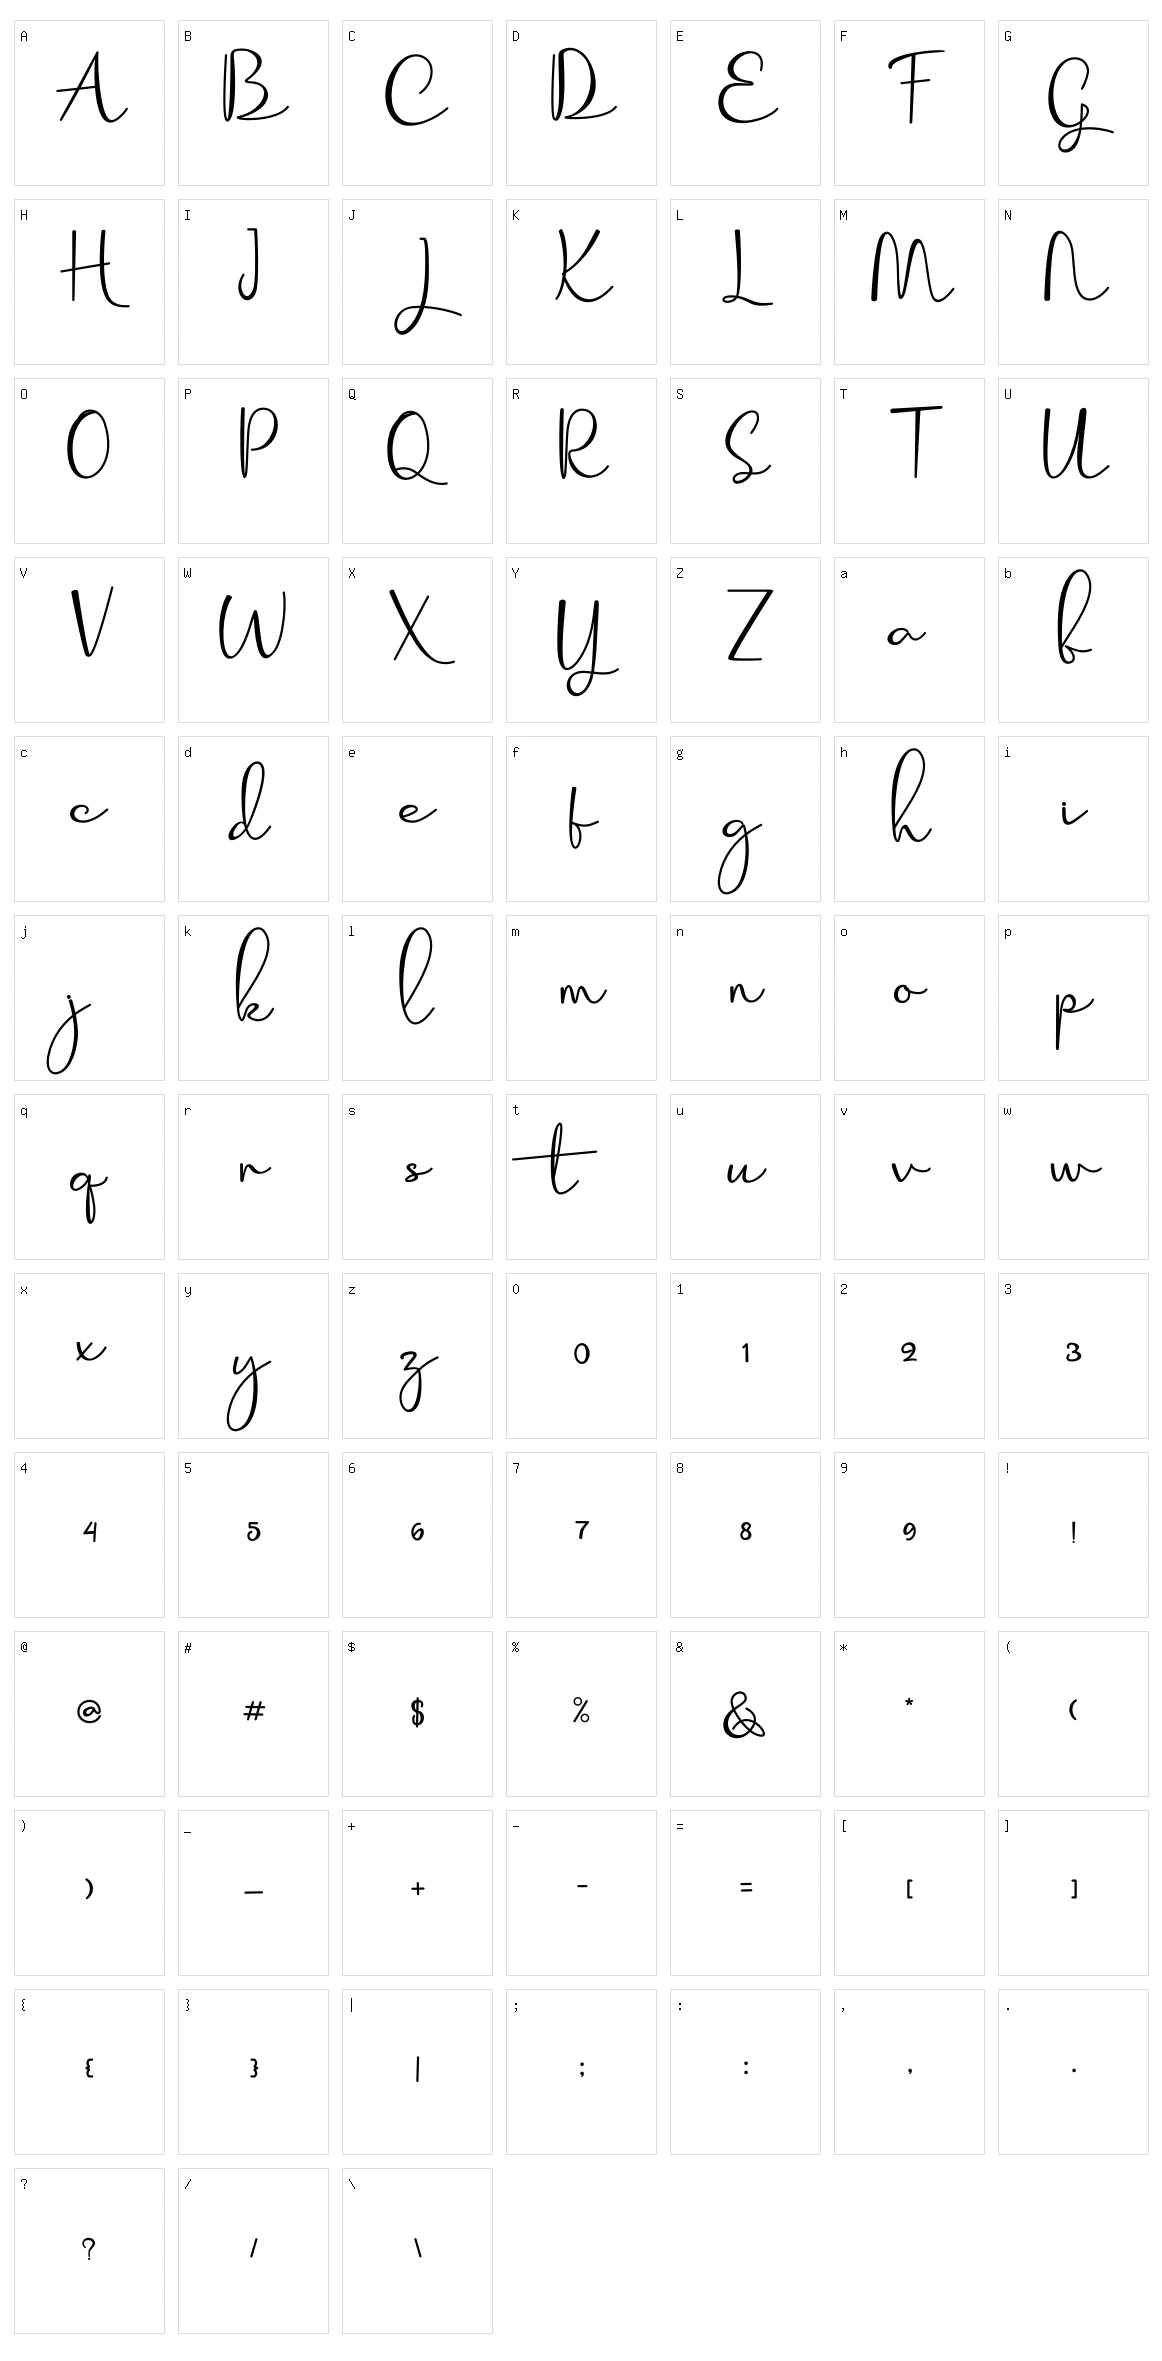 A B C D E F G
A B C D E F G
H I J K L M N
H I J K L M N
O P Q R S T U
O P Q R S T U
V W X Y Z a b
V W X Y Z a b
c d e f g h i
c d e f g h i
j k l m n o p
j k l m n o p
q r s t u v w
q r s t u v w
x y z 0 1 2 3
x y z 0 1 2 3
4 5 6 7 8 9 !
4 5 6 7 8 9 !
@ # $ % & * (
@ # $ % & * (
) _ + - = [ ]
) _ + - = [ ]
{ } | ; : , .
{ } | ; : , .
? / \
? / \